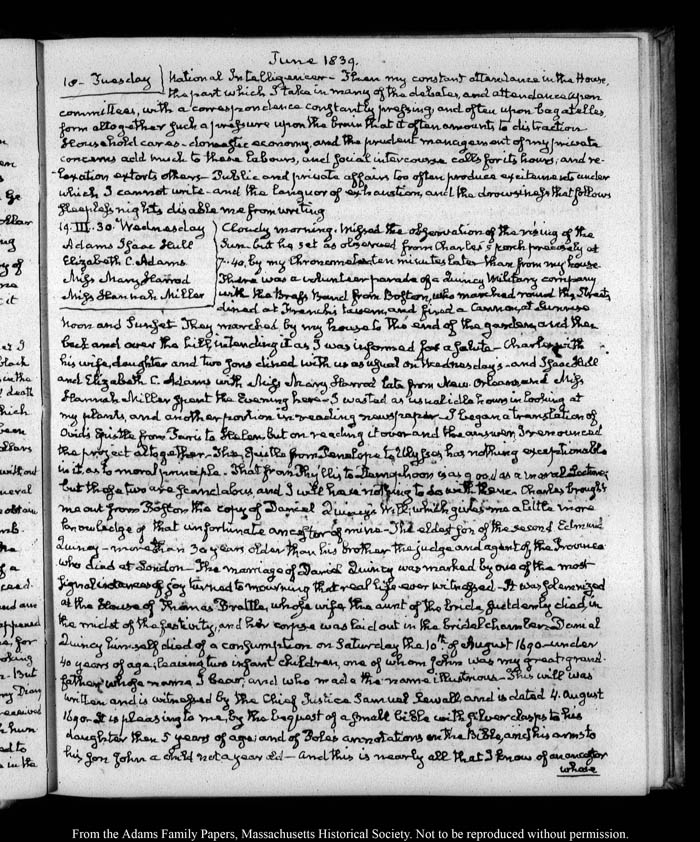 June 1839.
18. Tuesday } National Intelligencer - Then my constant attendance in the House,
the part which I take in many of the debates, and attendance upon
committees, with a correspondence constantly pressing and often upon bagatelles
form altogether such a pressure upon the brain that it often amounts to distraction
Household cares - domestic economy, and the prudent management of my private
concerns add much to these labours, and social intercourse calls for its hours; and re-
laxation extorts others - Public and private affairs too often produce excitements under
which I cannot write - and the languor of exhaustion, and the drowsiness that follows
sleepless nights disable me from writing
19. III. 30. Wednesday
Adams Isaac Hull
Elizabeth C. Adams
Miss Mary Harrod
Miss Hannah Miller
Cloudy morning. Missed the observation of the rising of the
Sun. but he set as observed from Charles's porch precisely at
7.40. by my Chronometer ten minutes later than from my house.
There was a volunteer parade of a Quincy Military company
with the Brass Band from Boston, who marched round the Streets
dined at French's tavern, and fired a Cannon at Sunrise
noon and Sunset They marched by my house to the end of the garden, and then
back and over the hill, intending it as I was informed for a salute - Charles with
his wife, daughter and two sons dined with us as usual on Wednesdays - and Isaac Hull
and Elizabeth C. Adams with Miss Mary Harrod late from New Orleans and Miss
Hannah Miller spent the Evening here - I wasted as usual idle hours in looking at
my plants, and another portion in reading newspapers - I began a translation of
Ovid's Epistle from Paris to Helen but on reading it over and the answer, I renounced
the project altogether - The Epistle from Penelope to Ulysses has nothing exceptionable
in it as to moral principle. That from Phyllis to Demophoon is as good as a moral Lecture;
but those two are scandalous and I will have nothing to do with them. Charles brought
me out from Boston the copy of Daniel Quincy's Will, which gives me a little more
knowledge of that unfortunate ancestor of mine - The eldest son of the second Edmund
Quincy - more than 30 years older than his brother the judge and agent of the Province
who died at London - The marriage of Daniel Quincy was marked by one of the most
signal instances of joy turned to mourning that real life ever witnessed - It was solemnized
at the House of Thomas Brattle, whose wife, the aunt of the bride, suddenly died, in
the midst of the festivity, and her corpse was laid out in the bridal chamber. Daniel
Quincy himself died of a consumption on Saturday the 10th of August 1690 - under
40 years of age, leaving two infant children, one of whom John was my great grand-
father whose name I bear, and who made the name illustrious - This will was
written and is witnessed by the Chief Justice Samuel Sewall, and is dated 4. August
1690. It is pleasing to me, by the bequest of a small bible with silver clasps to his
daughter then 5 years of age; and of Poles annotations on the Bible, and his arms to
his son John a child not a year old - And this is nearly all that I know of an ancestor
whose
From the Adams Family Papers, Massachusetts Historical Society. Not to be reproduced without permission.